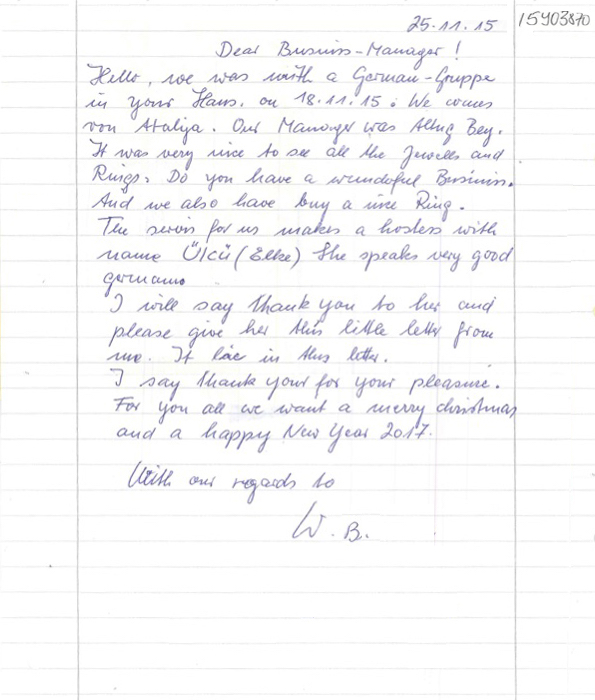 25.11.15
15Y03870
Dear Businiss-Manager!
Hello, we was with a German-Gruppe
in your Haus, on 18.11.15. We comes
von Atalija. Our Manager was Altug Bey.
It was very nice to see all the Jewells and
Rings. Do you have a wunderful Businiss.
And we also have buy a nice Ring.
The servis for us makes a hostess with
name Ülcü (Elke) She speaks very good
germans
I will say thank you to her and
please give her this little letter from
me. It lie in this letter.
I say thank your for your pleasure.
For you all we want a merry christmas
and a happy New Year 2017.
With our regards to
W. B.